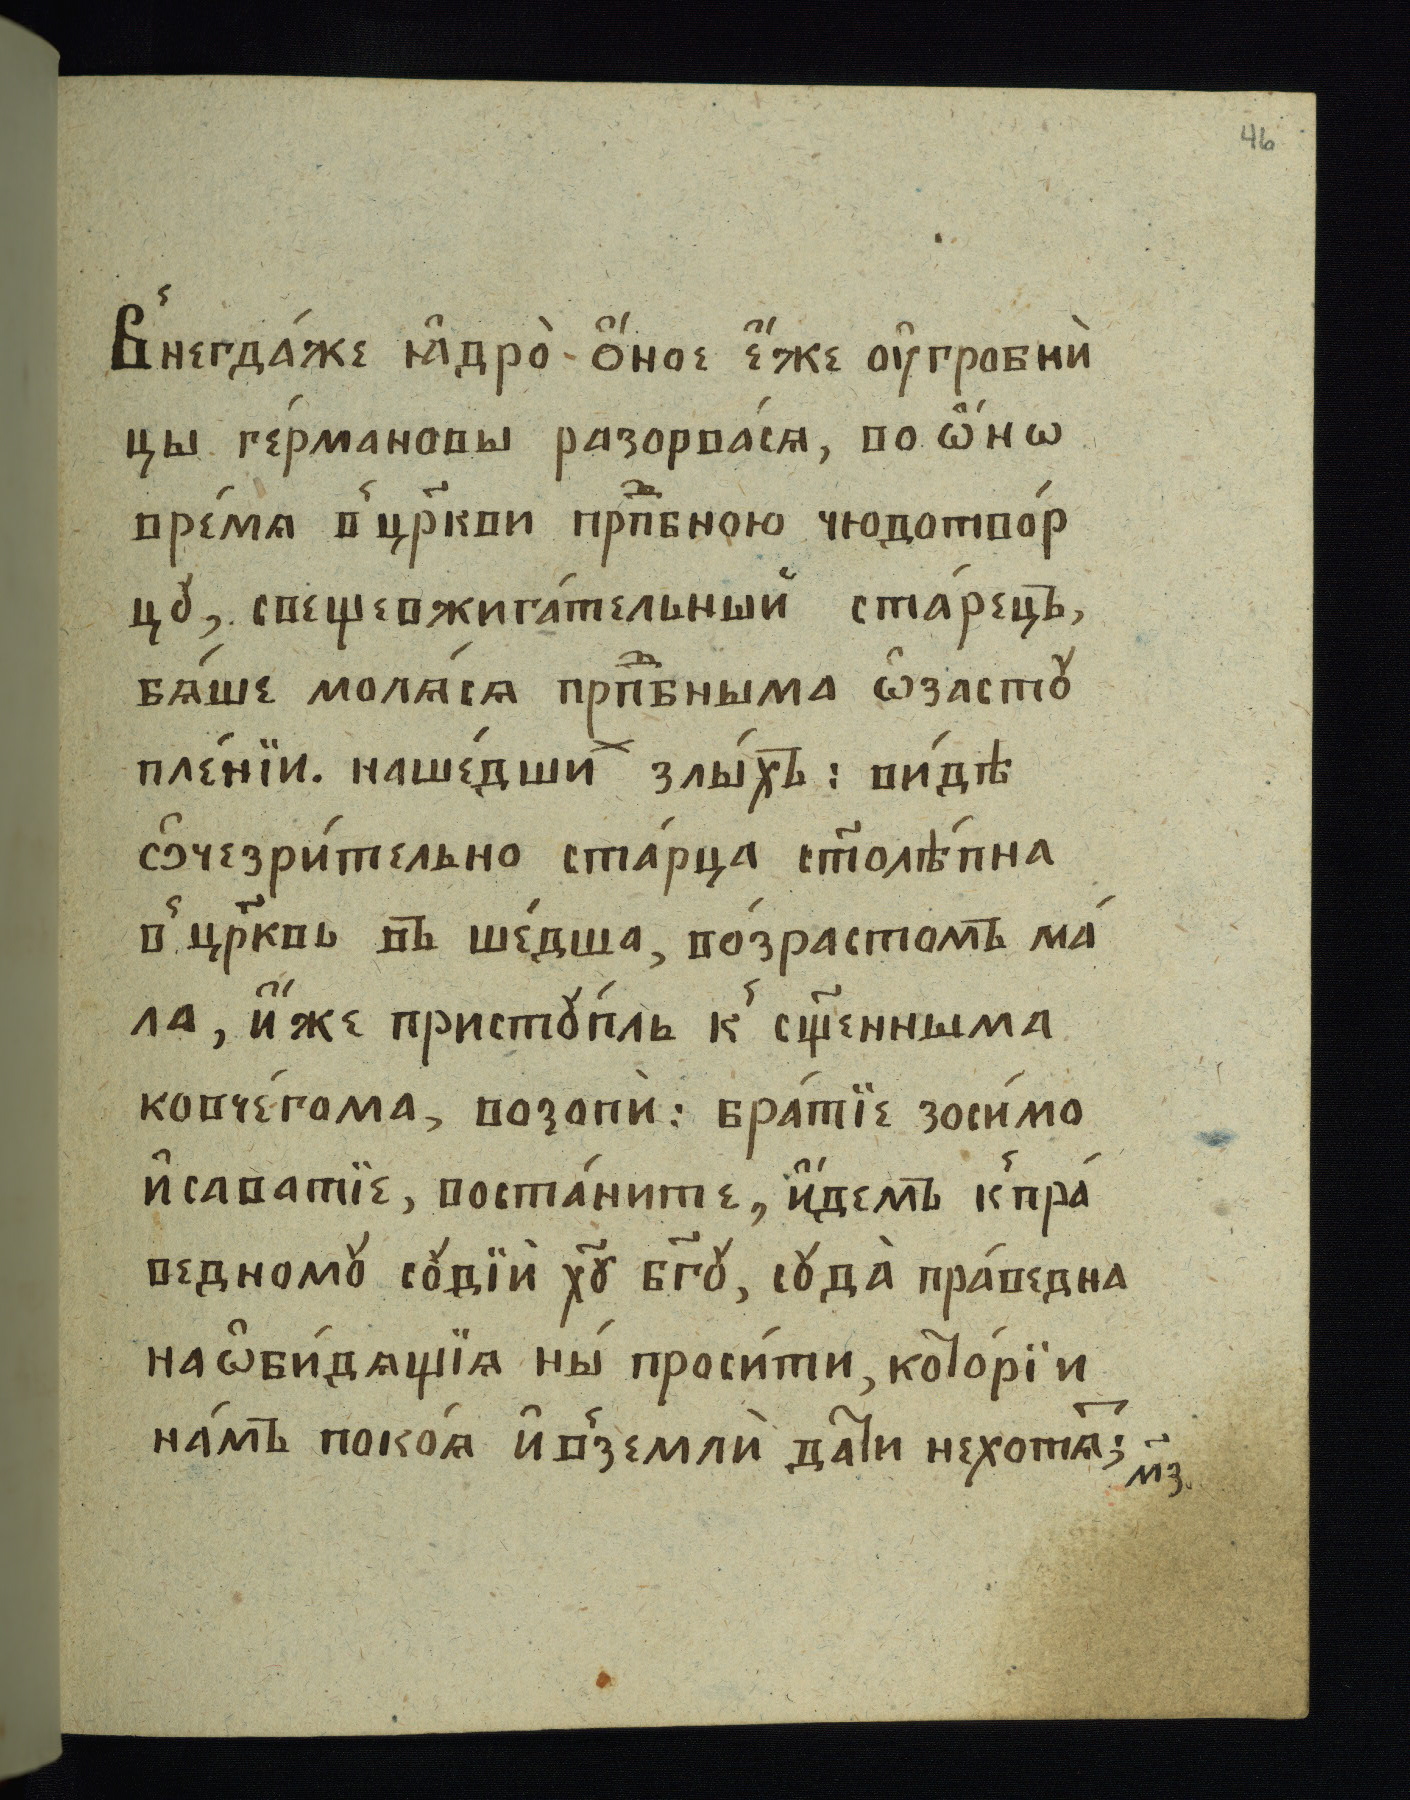 46
В҆негда́же ꙗ҆дро̀ ѻ҆́ное є҆́же ᲂу҆гробнѝ
цы ге́рмановы разорва́сѧ, во ѡ҆́нѡ
вре́мѧ в҆ цр҃кви прпⷣбною чюдотво́р
цꙋ, свещевжига́тельный ста́рецъ,
бѧ́ше молѧ́сѧ прпⷣбныма ѡ҆застꙋ
пле́нїи. наше́дшиⷯ злы́хъ: ви́дѣ
ѻ҆чезри́тельно ста́рца ст҃олѣ́пна
в҆ цр҃ковь въ ше́дша, во́зрастомъ ма́
ла, и҆́же пристꙋ́пль к҆ сщ҃енныма
ковче́гома, возопѝ: бра́тїе зоси́мо
и҆саватїе, воста́ните, и҆́демъ к҆пра́
ведномꙋ сꙋдїѝ хꙋ҃ бг҃ꙋ, сꙋда̀ пра́ведна
наѡ҆би́дѧщїѧ ны́ проси́ти, кото́рїи
на́мъ поко́ѧ и҆ в҆землѝ дати нехотѧ́;
мз҃.